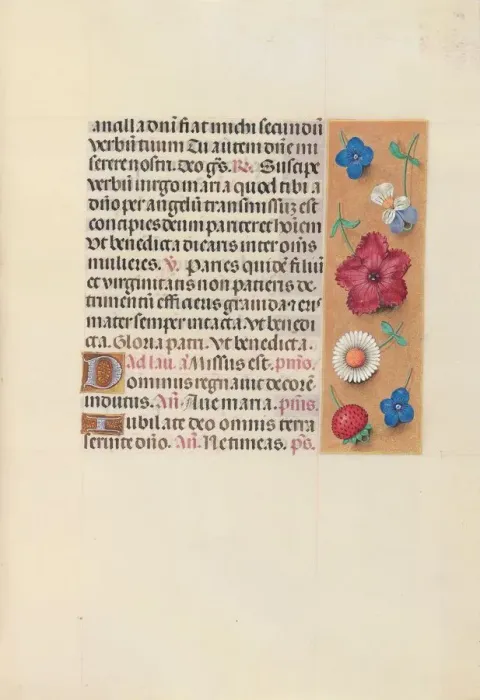 ancilla dnī fiat michi secundū
verbū tuum Tu autem dnē mi
serere nostri. deo grās. R. Suscipe
verbū virgo maria quod tibi a
dnō per angelū transmissūʒ est
concipies deum pariter et hoīem
Vt benedicta dicaris inter omīs
mulieres. V. Paries quidē filiū
et virginitatis non patieris de-
trimentū efficieris grauida ⁊ eris
mater semper intacta. Vt benedi
cta. Gloria patri. Vt benedicta.
Ad lau. a Missus est. pmō.
Dominus regnauit decorē
indutus. An. Aue maria. pms.
Iubilate deo omnis terra
seruite dnō. An. Ne timeas. ps.